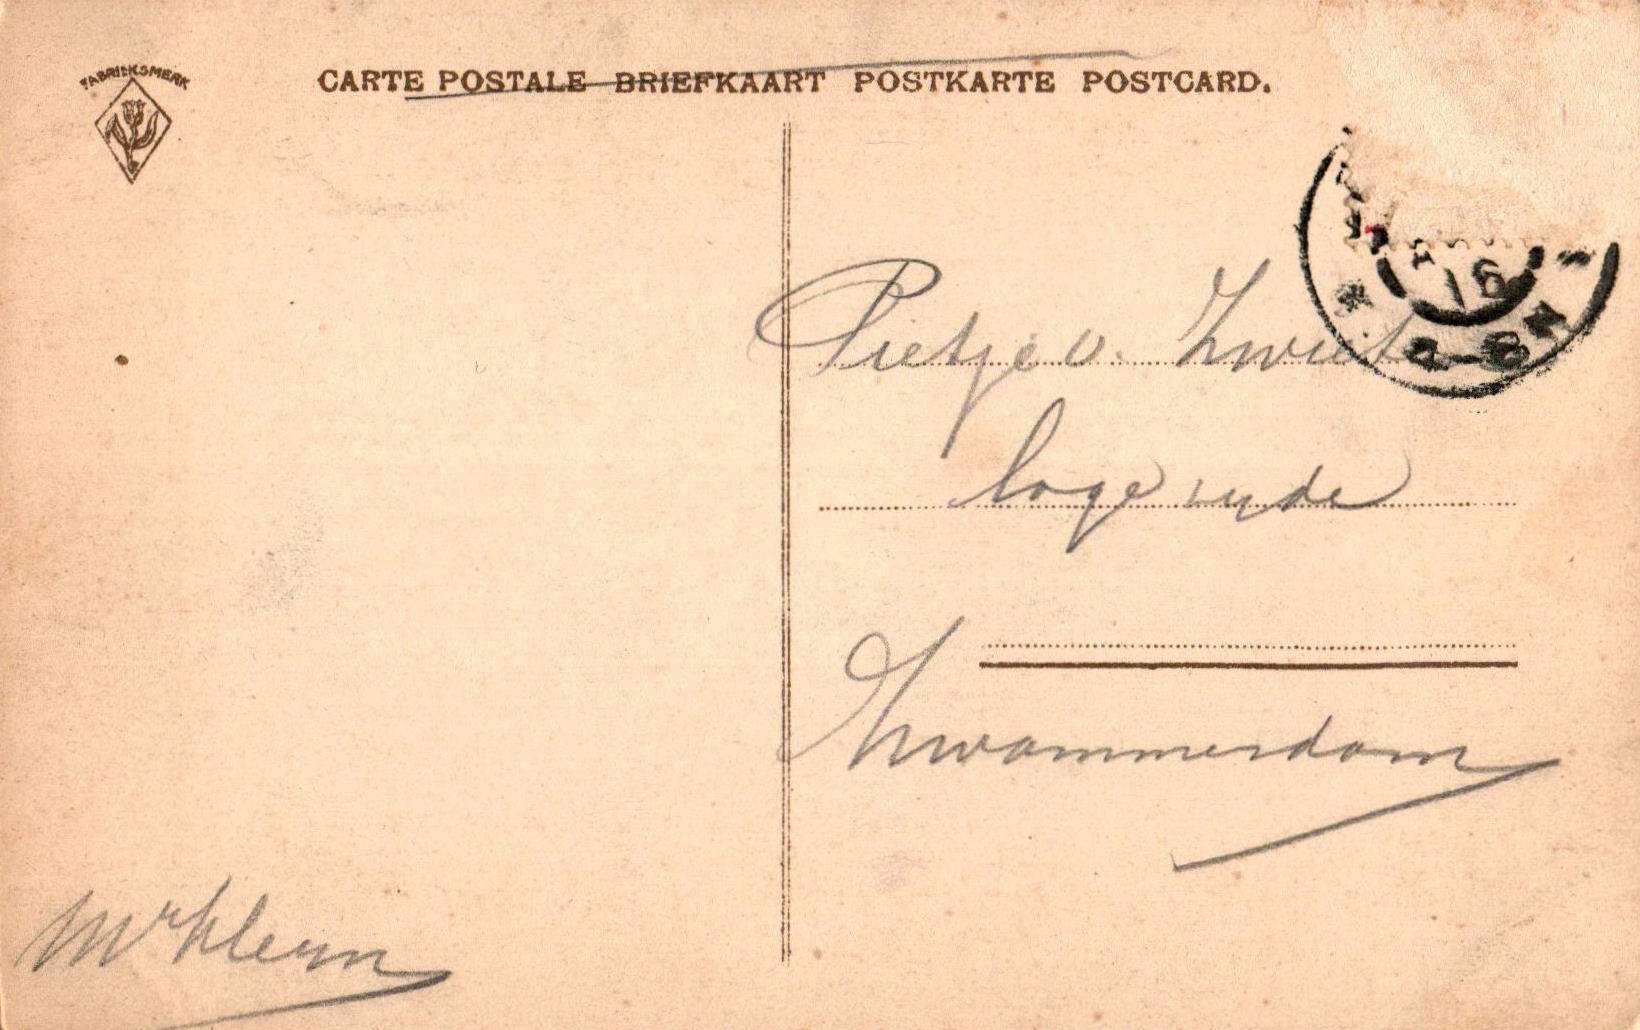 FABRIEKSMERK
CARTE POSTALE BRIEFKAART POSTKARTE POSTCARD.
16
8 N
Pietje v. Zwiet
Hogewyde
Zwammerdam
Mr Kleyn